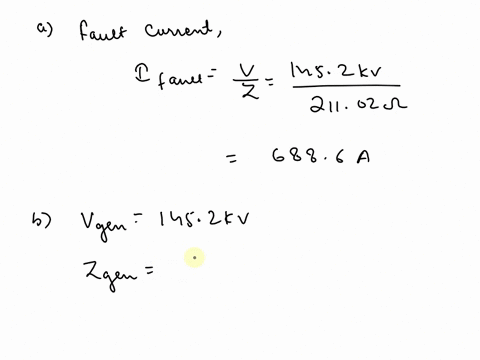 a) Fault current,
I fault = V/Z = 145.2 kv / 211.02 Ω
= 688.6 A
b) Vgen = 145.2 kV
Zgen =